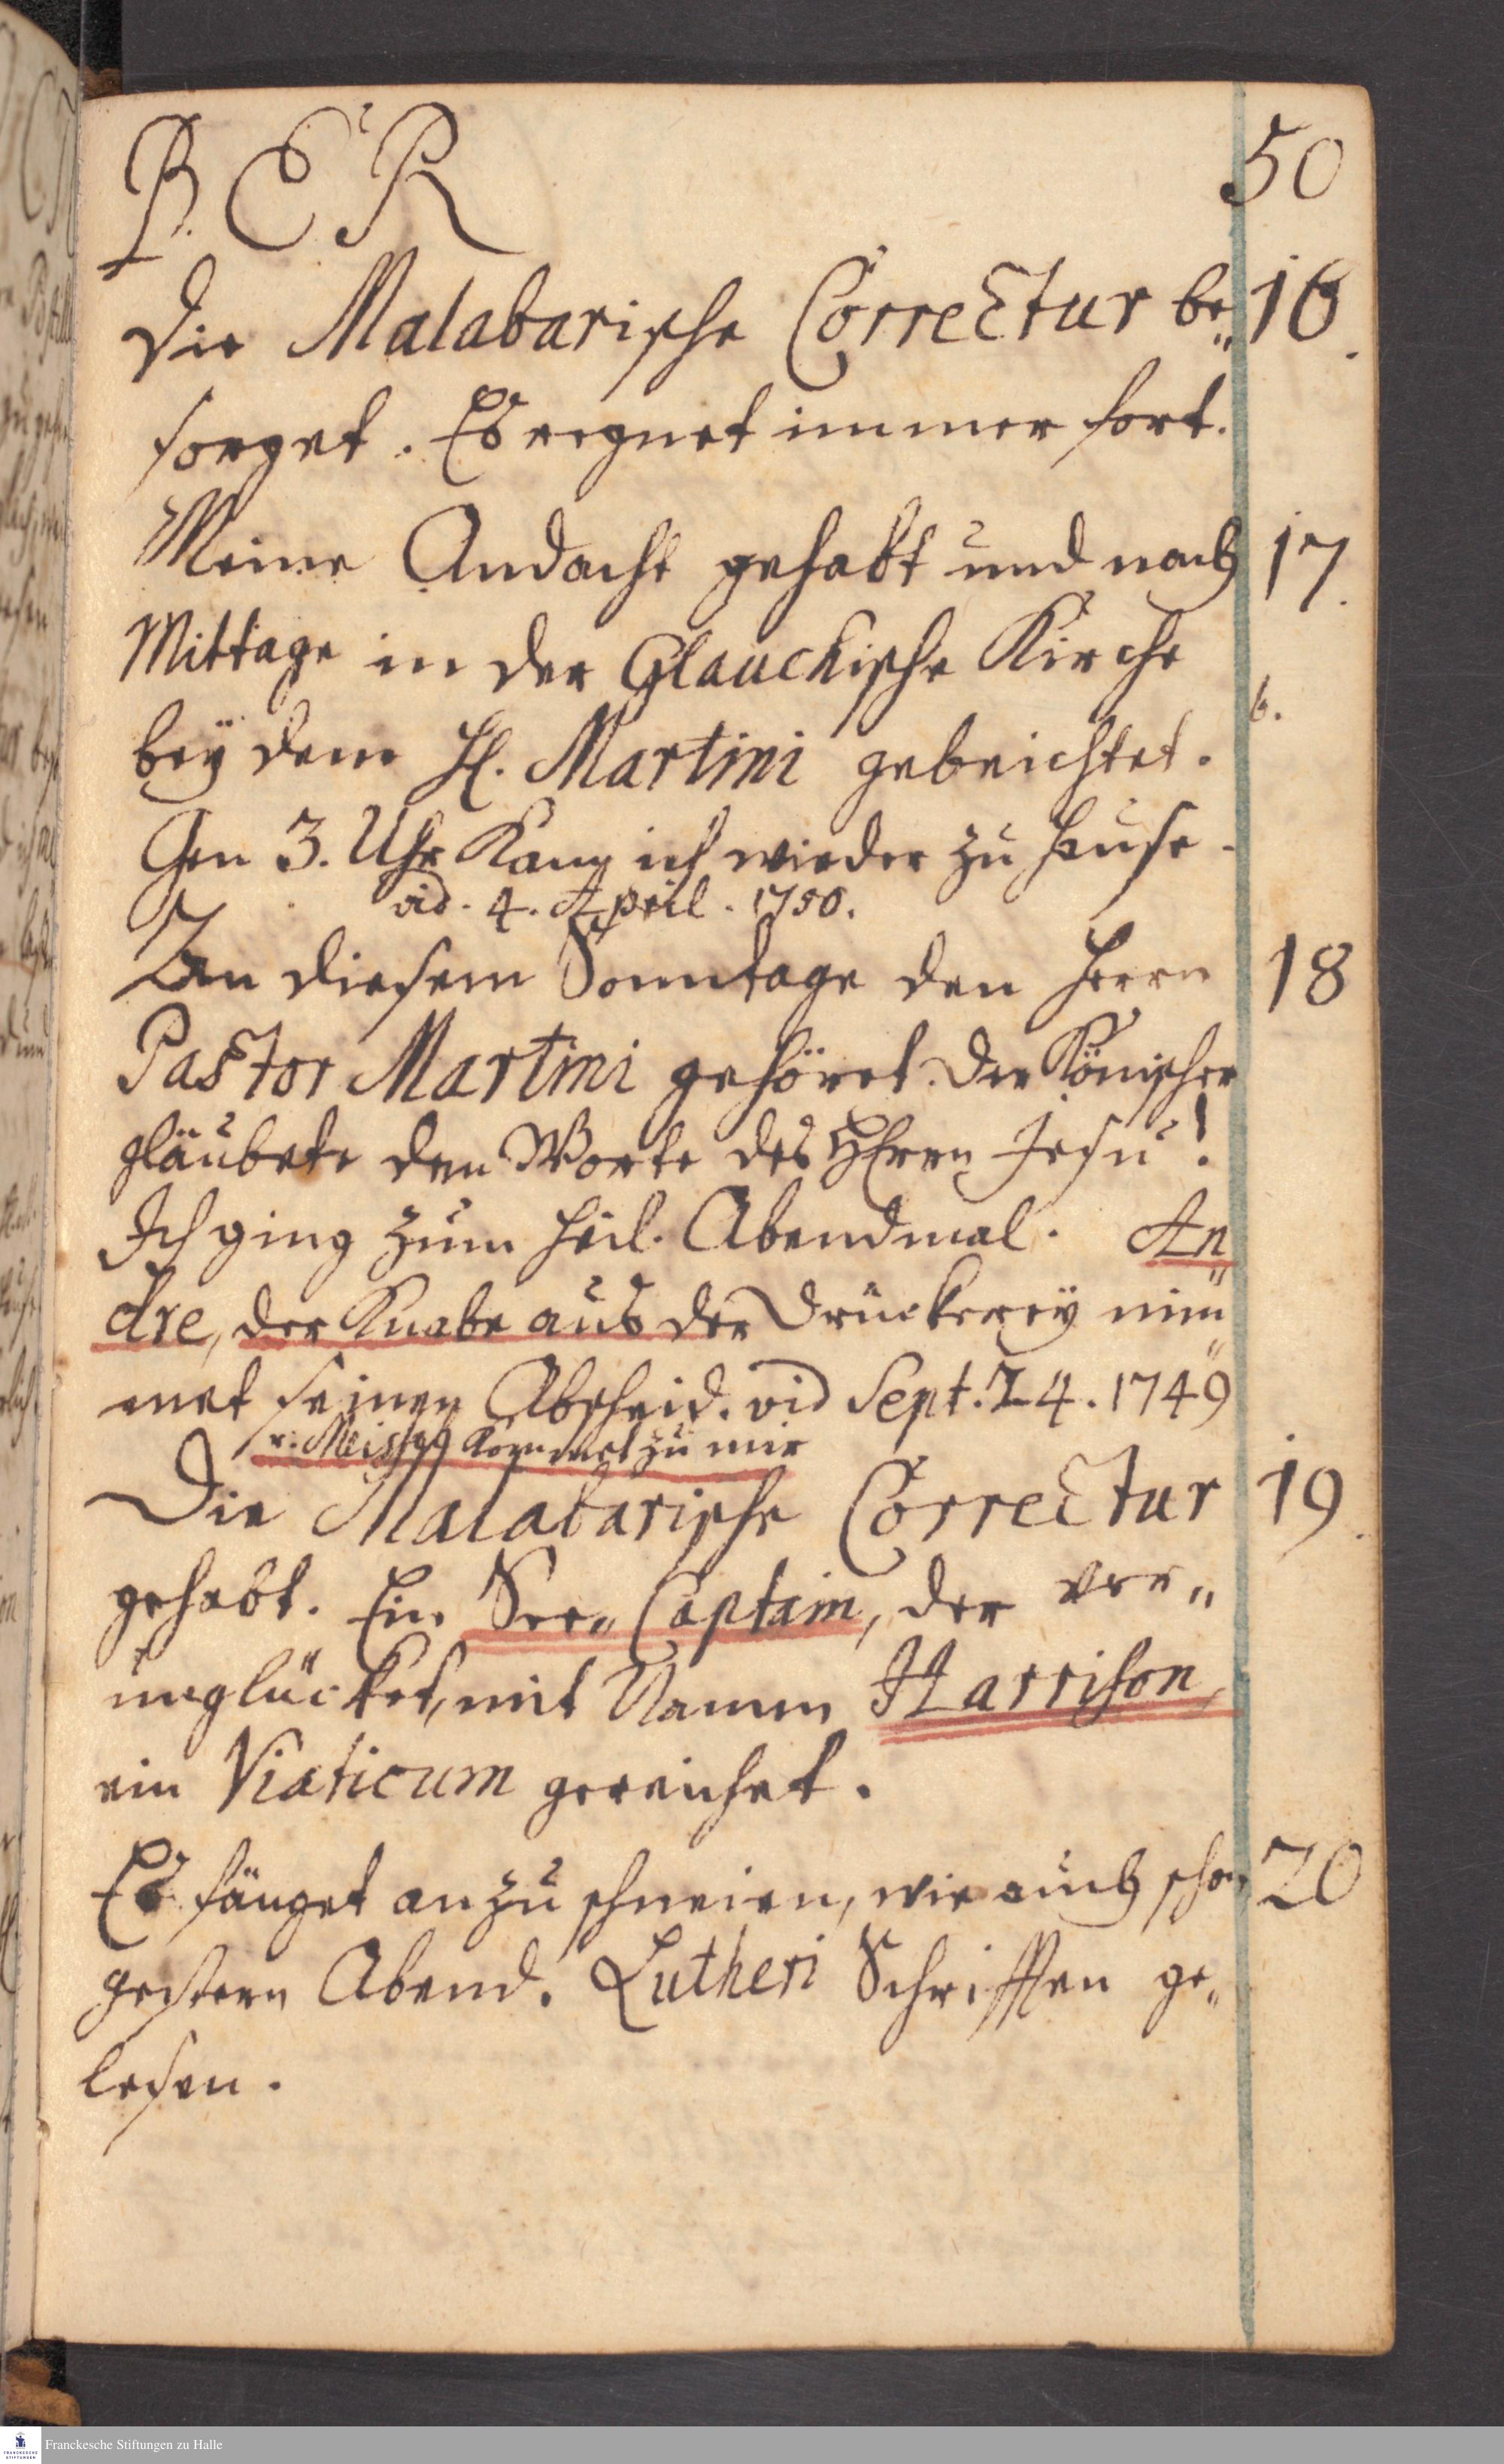 BER 50
Die Malabarische Correctur be„ 16.
sorget. Es regnet immer fort.
Meine Andacht gehabt und nach 17.
Mittage in der Glauchische Kirche
bey dem H. Martini gebeichtet. 6.
Gen 3. Uhr kam ich wieder zu Hause.
vid. 4. April. 1750.
An diesem Sonntage den Herrn 18
Pastor Martini gehöret. Der Königscher
gläubete den Worte des HErrn Jesu!
Ich ging zum heil. Abendmal. An„
dre, der Knabe aus der Druckerey nim„
met seinen Abscheid. vid Sept. 24. 1749
v. Meissel kommet zu mir
Die Malabarische Correctur 19.
gehabt. Ein See„Captain, der ver„
unglücket, mit Namen Harrison,
ein Viaticum gereichet.
Es fänget an zu schneien, wie auch schon 20
gestern Abend. Lutheri Schrifften ge„
lesen.
Franckesche Stiftungen zu Halle